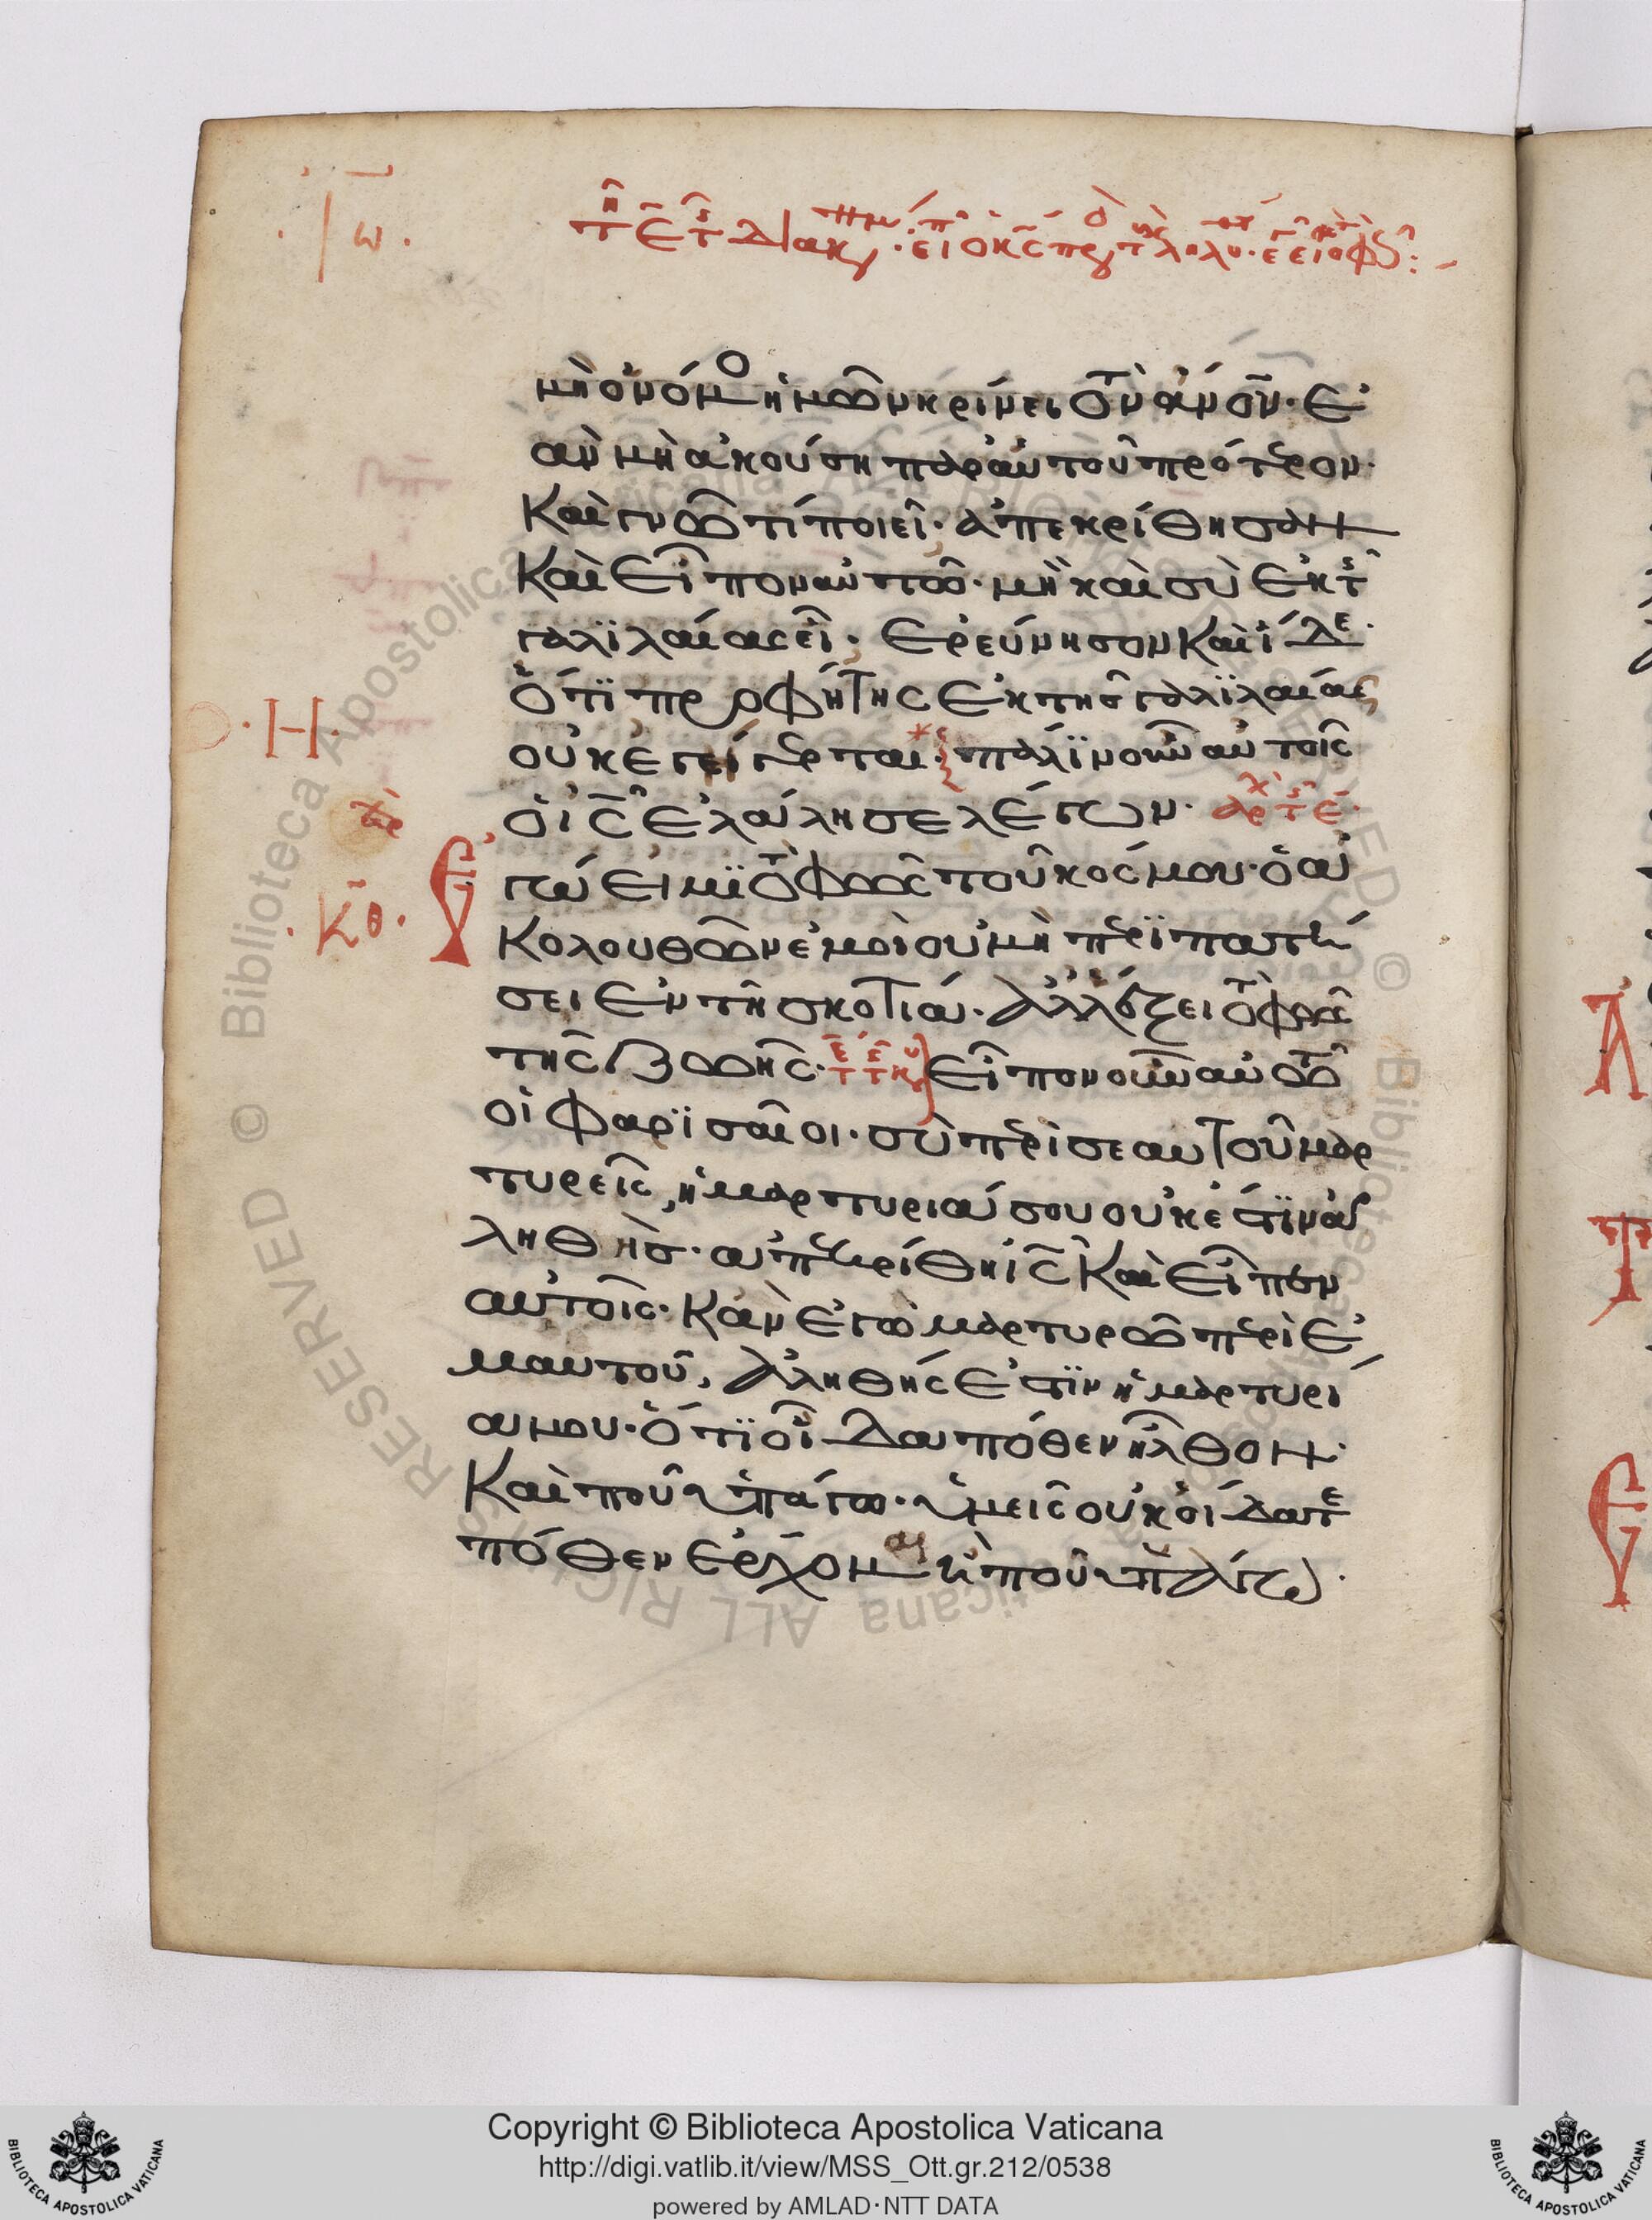 μὴ ὁ νόμο ἡμῶν κρίνει τὸν ἄνον· ἐ
ὰν μὴ ἀκούση παρ' αὐτοῦ πρότερον·
Καὶ γνῶ τί ποιεῖ· ἀπεκρίθησαν
Καὶ εἶπον αὐτῶ· μὴ καὶ σὺ ἐκ τῆς
γαλϊλαίας εἶ· ἐρεύνησον Καὶ ἴδε·
ὅτϊ προφήτης ἐκ τῆς γαλϊλαίας
οὐκ ἐγείγερται· πάλϊν οὖν αὐτοῖς
ὁ ισ ἐλάλησε λέγων· αρχ τ ε
Ἐ
γώ εἰμϊ τὸ φῶς τοῦ κόσμου· ὁ ἀ
Κολουθῶν ἐμοὶ οὐ μὴ περϊπατή
σει ἐν τῆ σκοτία· ἀλλ' ἕξει τὸ φῶς
τῆς ζωῆς· εἶπον οὖν αὐτῶ
οἱ φαρϊσαῖοι· σὺ περὶ σεαυτοῦ μαρ
τυρεῖς, ἡ μαρτυρία σου οὐκ ἔστϊν ἀ
ληθής· ἀπεκρίθη ισ Καὶ εἶπεν
αὐτοῖς· Κἂν ἐγὼ μαρτυρῶ περὶ ἐ
μαυτοῦ, ἀληθής ἐστϊν ἡ μαρτυρί
α μου· ὅτϊ οἶδα πόθεν ἦλθον·
Καὶ ποῦ ὑπάγω· ὑμεῖς οὐκ οἴδατε
πόθεν ἔρχομαι κὶ ποῦ ὑπάγω·
·Η·
·Κθ·
Copyright © Biblioteca Apostolica Vaticana
http://digi.vatlib.it/view/MSS_Ott.gr.212/0538
powered by AMLAD·NTT DATA
BIBLIOTECA APOSTOLICA VATICANA
BIBLIOTECA APOSTOLICA VATICANA